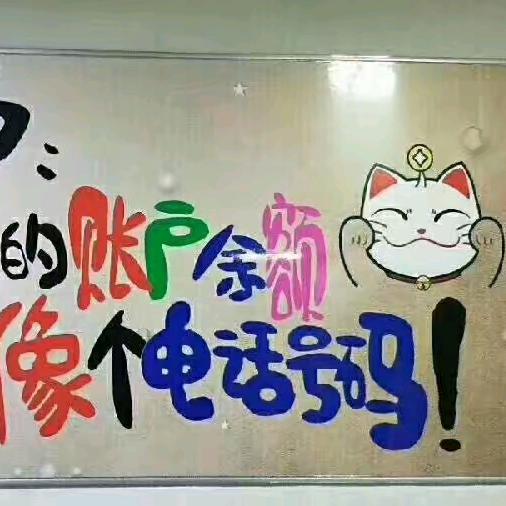 :
的账户余额
像个电话号码!